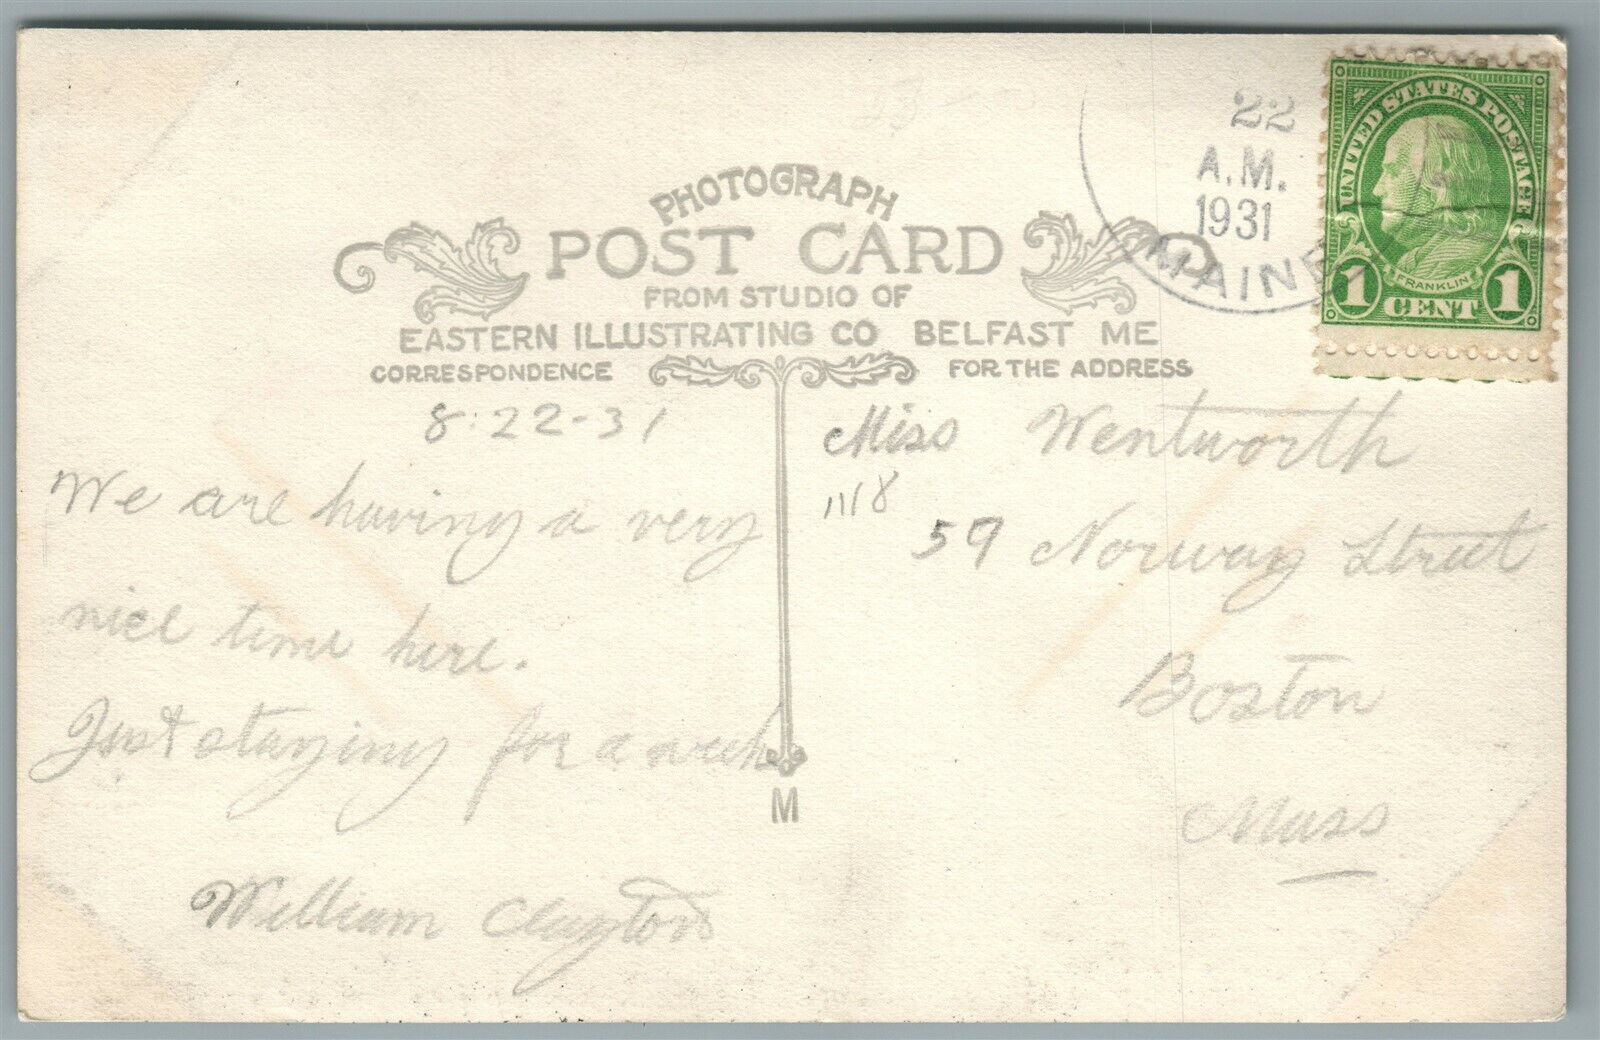 22
A.M.
1931
MAINE
UNITED STATES POSTAGE
FRANKLIN
1 CENT 1
PHOTOGRAPH
POST CARD
FROM STUDIO OF
EASTERN ILLUSTRATING CO BELFAST ME
CORRESPONDENCE
FOR THE ADDRESS
8-22-31
We are having a very
nice time here.
Just staying for a week
William Clayton
M
Miss Wentworth
1118
59 Norway Street
Boston
Mass